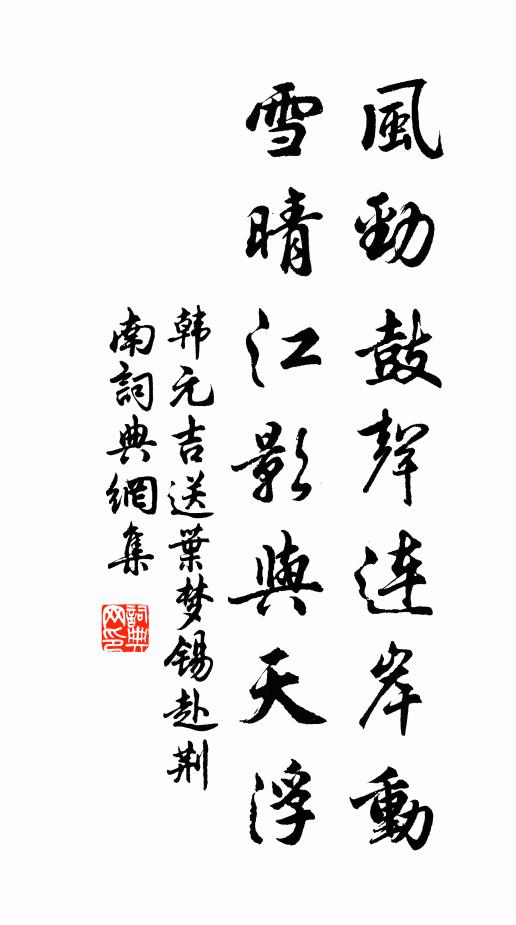 風勁鼓聲連岸動
雪晴江影與天浮
韩元吉送葉梦锡赴荆
南詞典網集
詞典
网印